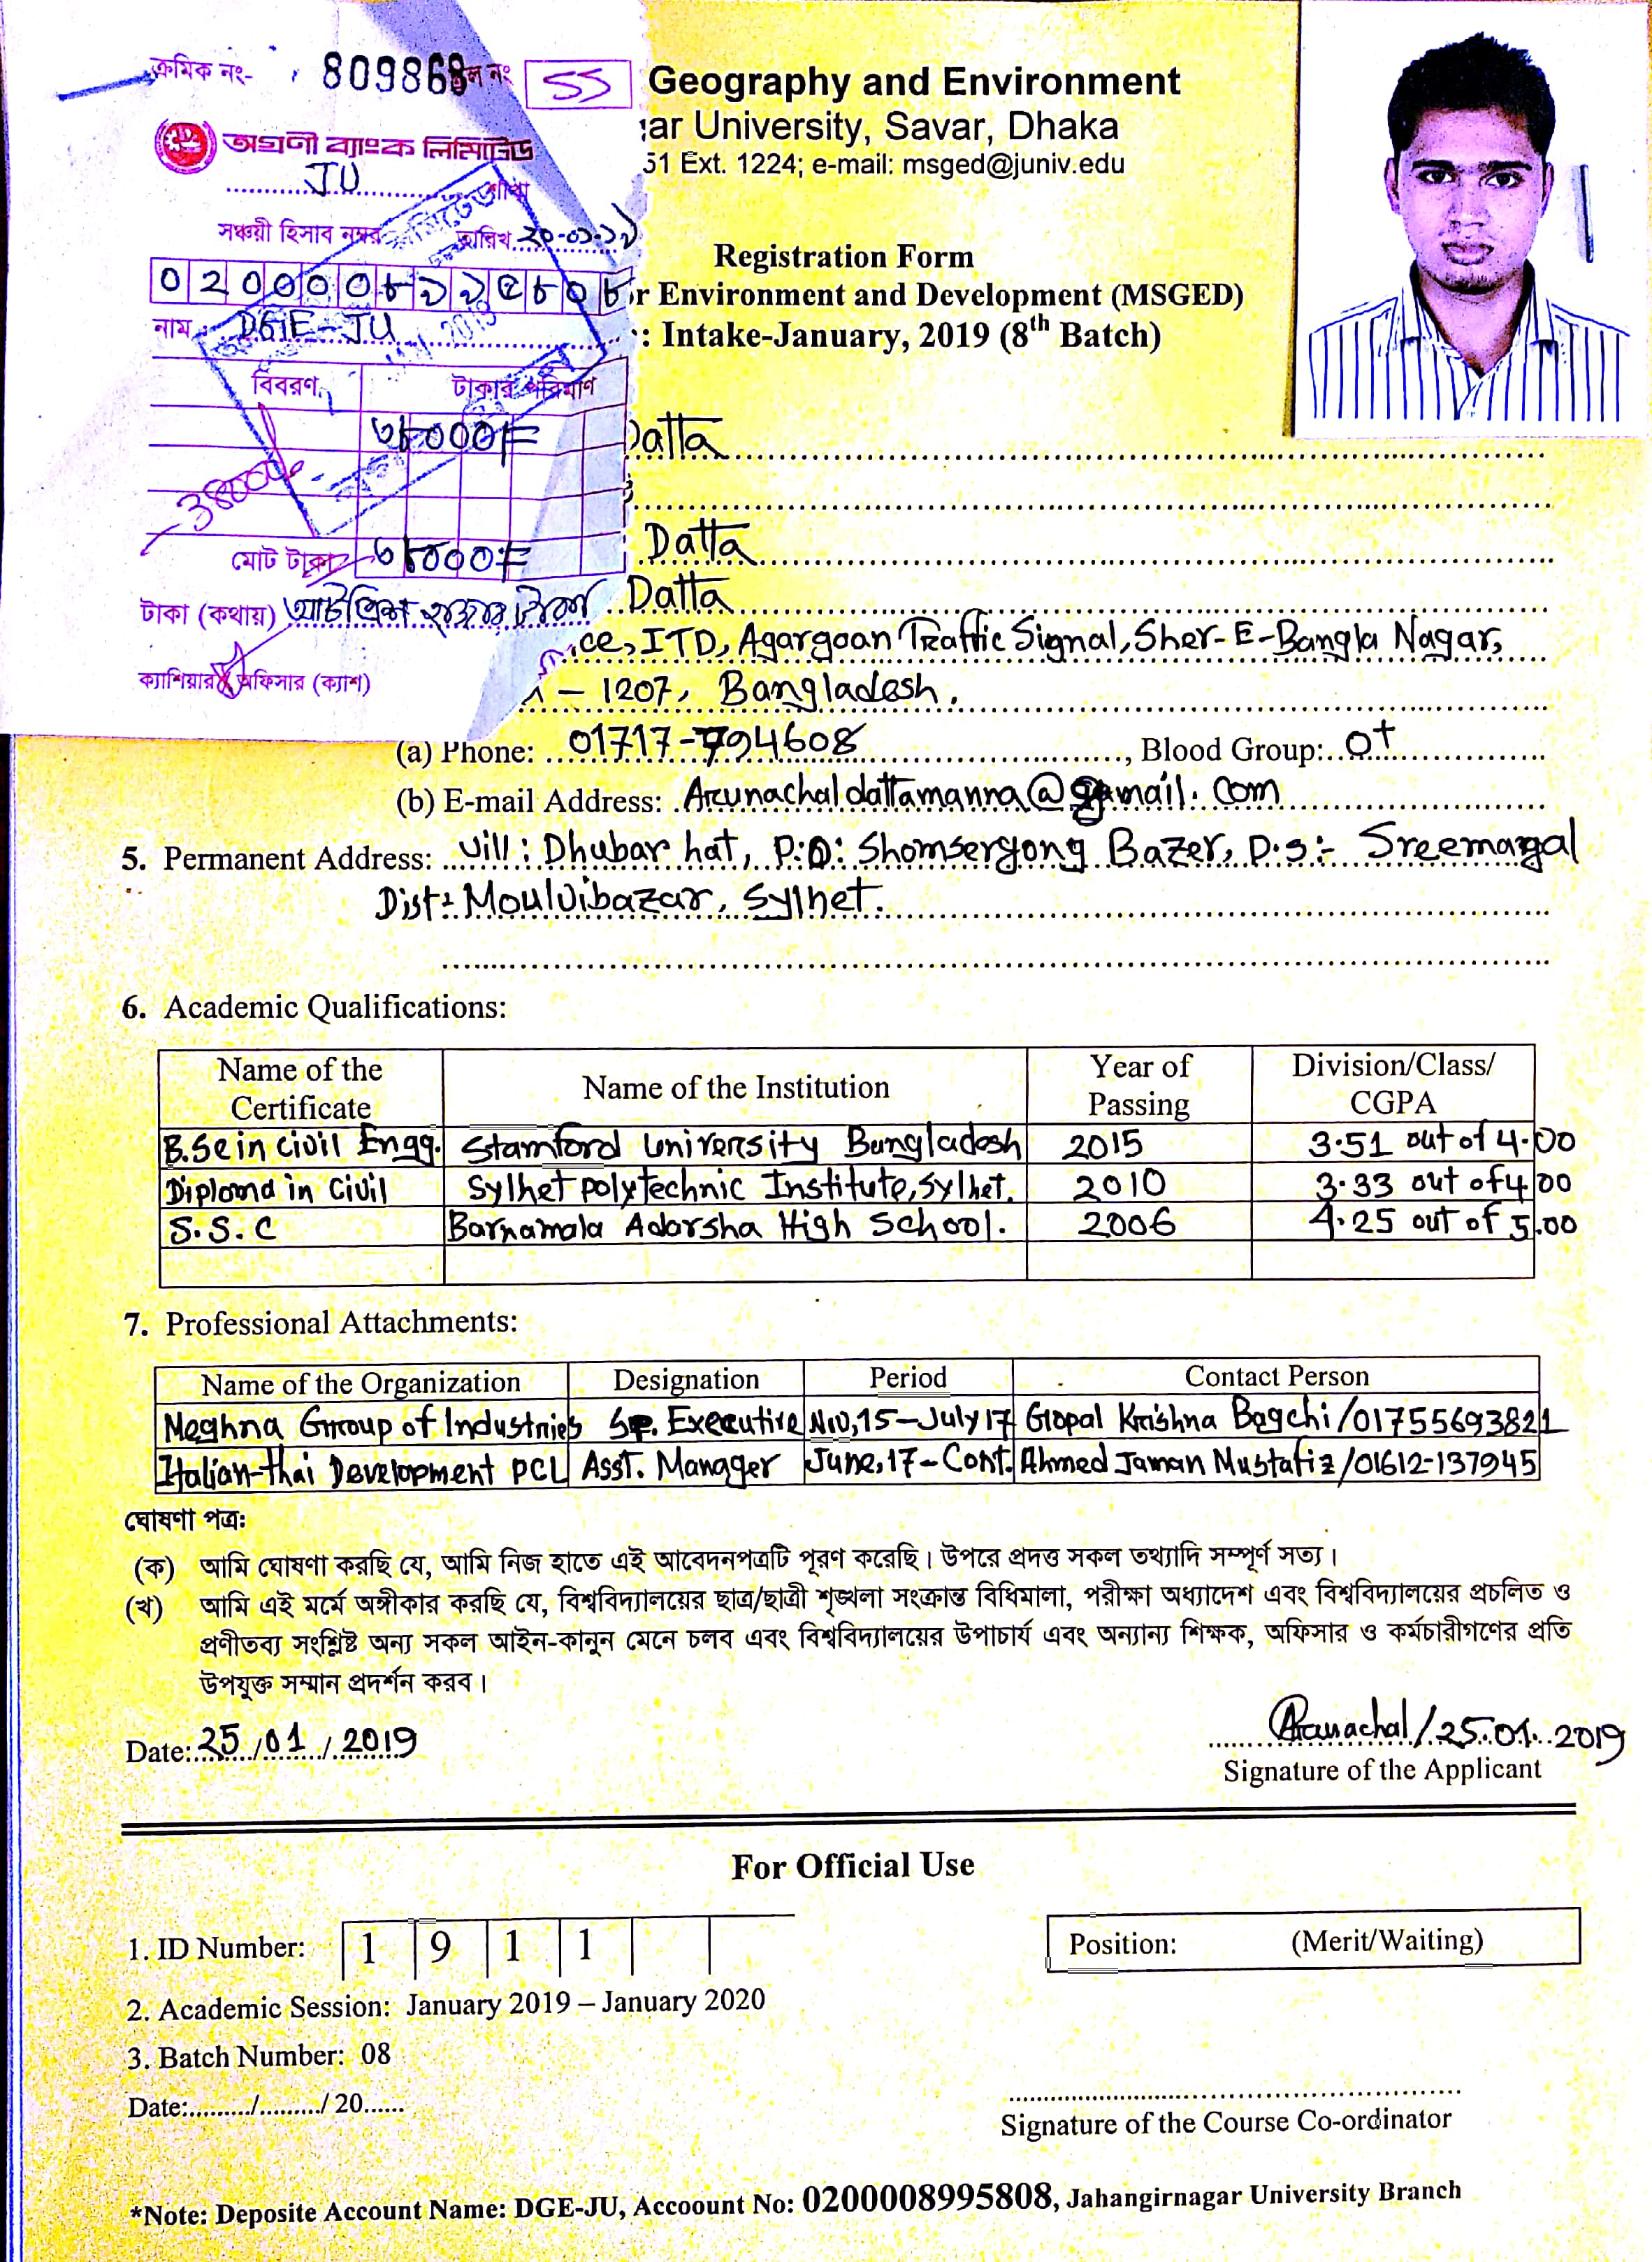 ক্রমিক নং- 809868 ল নং SS
অগ্রণী ব্যাংক লিমিটেড
JU শাখা
সঞ্চয়ী হিসাব নম্বর তারিখ ২০-০১-১৯
নাম : DGE-JU
বিবরণ টাকার পরিমাণ
৩৮০০০/=
38000/=
মোট টাকা ৩৮০০০/=
টাকা (কথায়) আটত্রিশ হাজার
ক্যাশিয়ার অফিসার (ক্যাশ)
Geography and Environment
ar University, Savar, Dhaka
51 Ext. 1224; e-mail: msged@juniv.edu
Registration Form
r Environment and Development (MSGED)
: Intake-January, 2019 (8th Batch)
Datta
Datta
Datta
ce, ITD, Agargoan Traffic Signal, Sher-E-Bangla Nagar,
– 1207, Bangladesh.
(a) Phone: 01717-794608, Blood Group: O+
(b) E-mail Address: Arunachaldattamanna@gmail.com
5. Permanent Address: Vill: Dhubar hat, P:O: Shomsergong Bazer, P.S:- Sreemagal
Dist: Moulvibazar, Sylhet.
6. Academic Qualifications:
Name of the Certificate Name of the Institution Year of Passing Division/Class/ CGPA
B.Sc in Civil Engg. Stamford University Bangladesh 2015 3.51 out of 4.00
Diploma in Civil Sylhet polytechnic Institute, Sylhet. 2010 3.33 out of 4.00
S.S.C Barnamala Adarsha High School. 2006 4.25 out of 5.00
7. Professional Attachments:
Name of the Organization Designation Period Contact Person
Meghna Group of Industries Sr. Executive Nov,15-July 17 Gopal Krishna Bagchi/01755693821
Italian-thai Development PCL Asst. Manager June,17-Cont. Ahmed Jaman Mustafiz/01612-137945
ঘোষণা পত্র:
(ক) আমি ঘোষণা করছি যে, আমি নিজ হাতে এই আবেদনপত্রটি পূরণ করেছি। উপরে প্রদত্ত সকল তথ্যাদি সম্পূর্ণ সত্য।
(খ) আমি এই মর্মে অঙ্গীকার করছি যে, বিশ্ববিদ্যালয়ের ছাত্র/ছাত্রী শৃঙ্খলা সংক্রান্ত বিধিমালা, পরীক্ষা অধ্যাদেশ এবং বিশ্ববিদ্যালয়ের প্রচলিত ও
প্রণীতব্য সংশ্লিষ্ট অন্য সকল আইন-কানুন মেনে চলব এবং বিশ্ববিদ্যালয়ের উপাচার্য এবং অন্যান্য শিক্ষক, অফিসার ও কর্মচারীগণের প্রতি
উপযুক্ত সম্মান প্রদর্শন করব।
Date: 25/01/2019
Arunachal/25.01.2019
Signature of the Applicant
For Official Use
1. ID Number: 1 9 1 1
Position: (Merit/Waiting)
2. Academic Session: January 2019 – January 2020
3. Batch Number: 08
Date:........./........./ 20......
Signature of the Course Co-ordinator
*Note: Deposite Account Name: DGE-JU, Accoount No: 0200008995808, Jahangirnagar University Branch